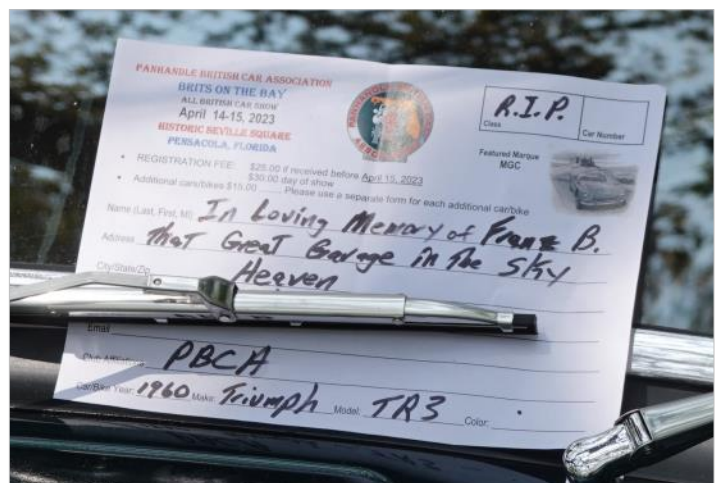 PANHANDLE BRITISH CAR ASSOCIATION
BRITS ON THE BAY
ALL BRITISH CAR SHOW
April 14-15, 2023
HISTORIC SEVILLE SQUARE
PENSACOLA, FLORIDA
R.I.P.
Class Car Number
Featured Marque
MGC
• REGISTRATION FEE: $25.00 if received before April 15, 2023
$30.00 day of show
• Additional cars/bikes $15.00 Please use a separate form for each additional car/bike
Name (Last, First, MI) In Loving Memory of Franz B.
Address That Great Garage in The Sky
City/State/Zip Heaven
Email
Club Affiliation PBCA
Car/Bike Year: 1960 Make: Triumph Model: TR3 Color: